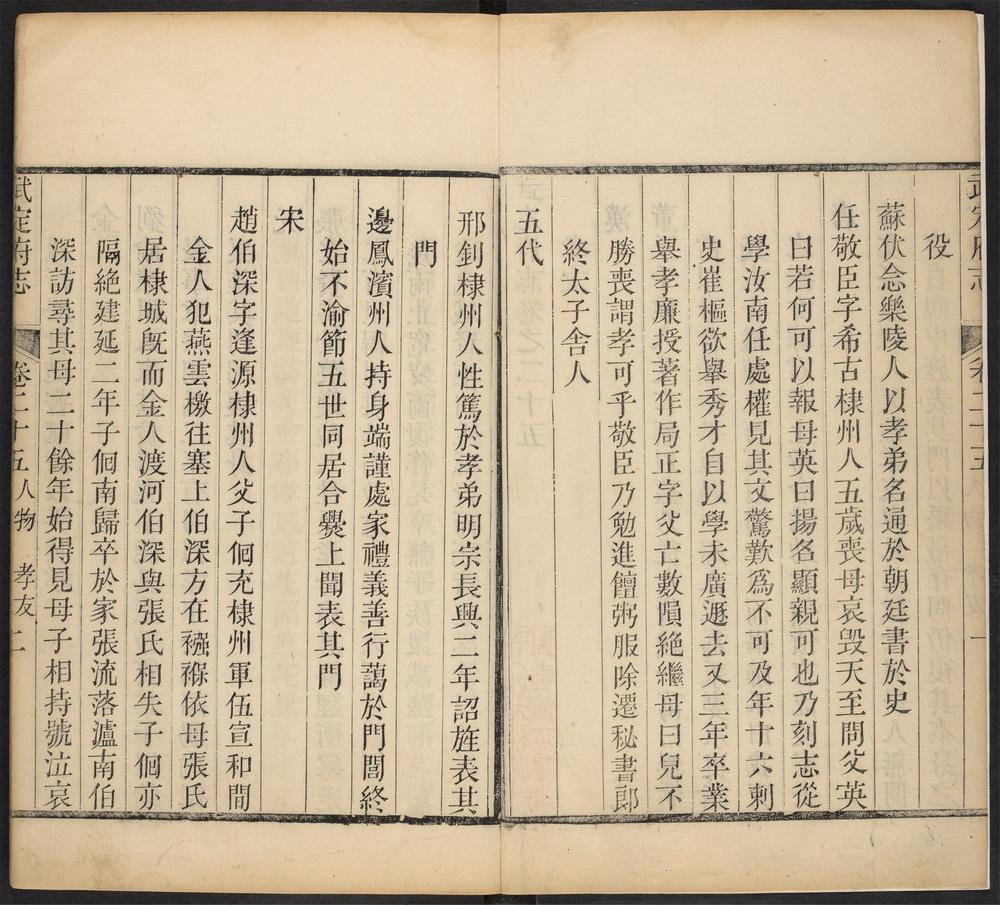 武定府志 卷二十五 人物 孝友 一
役
蘇伏念樂陵人以孝弟名通於朝廷書於史
任敬臣字希古棣州人五歲喪母哀毀天至問父英
曰若何可以報母英曰揚名顯親可也乃刻志從
學汝南任處權見其文驚歎爲不可及年十六刺
史崔樞欲舉秀才自以學未廣遯去又三年卒業
舉孝廉授著作局正字父亡數隕絕繼母曰兒不
勝喪謂孝可乎敬臣乃勉進饘粥服除遷秘書郎
終太子舍人
五代
邢釗棣州人性篤於孝弟明宗長興二年詔旌表其
門
邊鳳濱州人持身端謹處家禮義善行藹於門閭終
始不渝節五世同居合爨上聞表其門
宋
趙伯深字逢源棣州人父子侗充棣州軍伍宣和間
金人犯燕雲檄往塞上伯深方在襁褓依母張氏
居棣城旣而金人渡河伯深與張氏相失子侗亦
隔絕建延二年子侗南歸卒於家張流落瀘南伯
深訪尋其母二十餘年始得見母子相持號泣哀
武定府志 卷二十五 人物 孝友 二